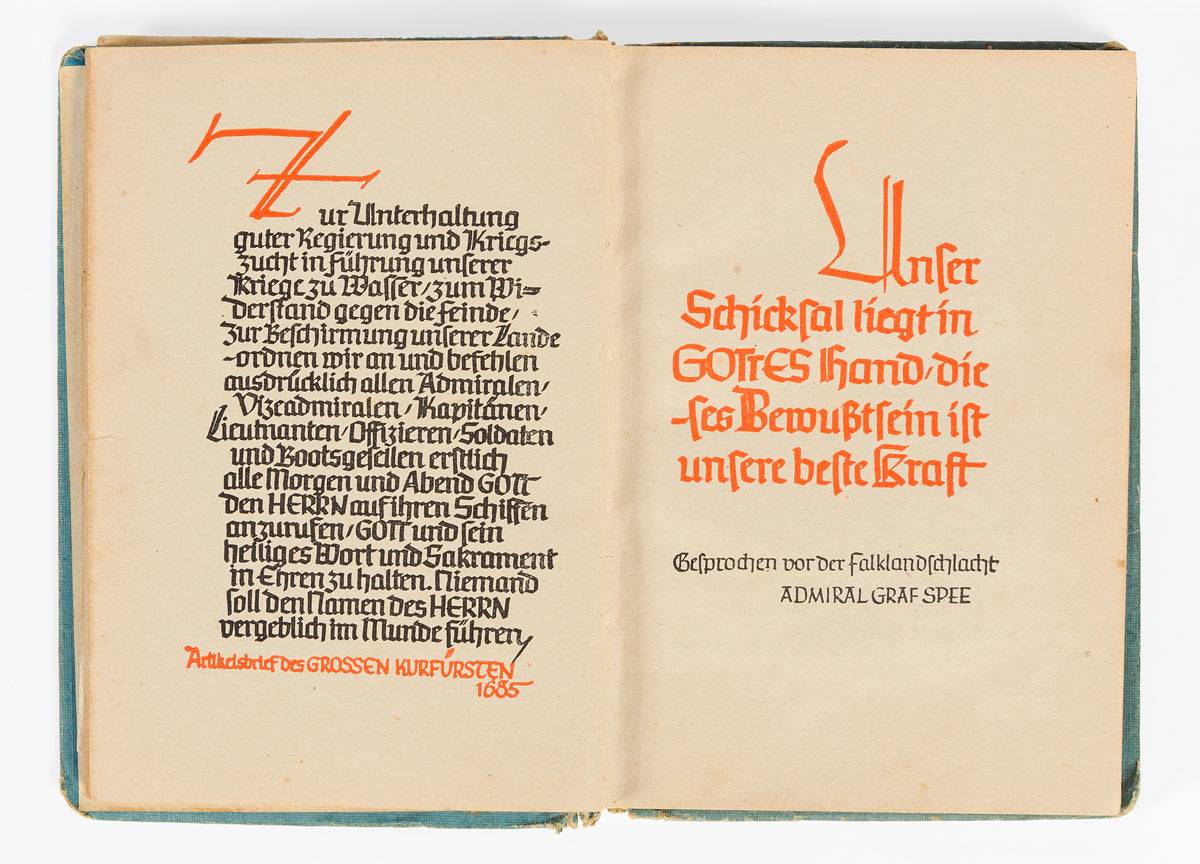 Zur Unterhaltung
guter Regierung und Kriegs-
zucht in Führung unserer
Kriege zu Wasser/zum Wi-
derstand gegen die Feinde/
zur Beschirmung unserer Lande
-ordnen wir an und befehlen
ausdrücklich allen Admiralen/
Vizeadmiralen/Kapitänen/
Lieutnanten/Offizieren/Soldaten
und Bootsgesellen erstlich
alle Morgen und Abend GOTT
den HERRN auf ihren Schiffen
anzurufen/GOTT und sein
heiliges Wort und Sakrament
in Ehren zu halten. Niemand
soll den Namen des HERRN
vergeblich im Munde führen/
Artikelsbrief des GROSSEN KURFÜRSTEN
1685
Unser
Schicksal liegt in
GOTTES Hand/die
-ses Bewußtsein ist
unsere beste Kraft
Gesprochen vor der Falklandschlacht
ADMIRAL GRAF SPEE